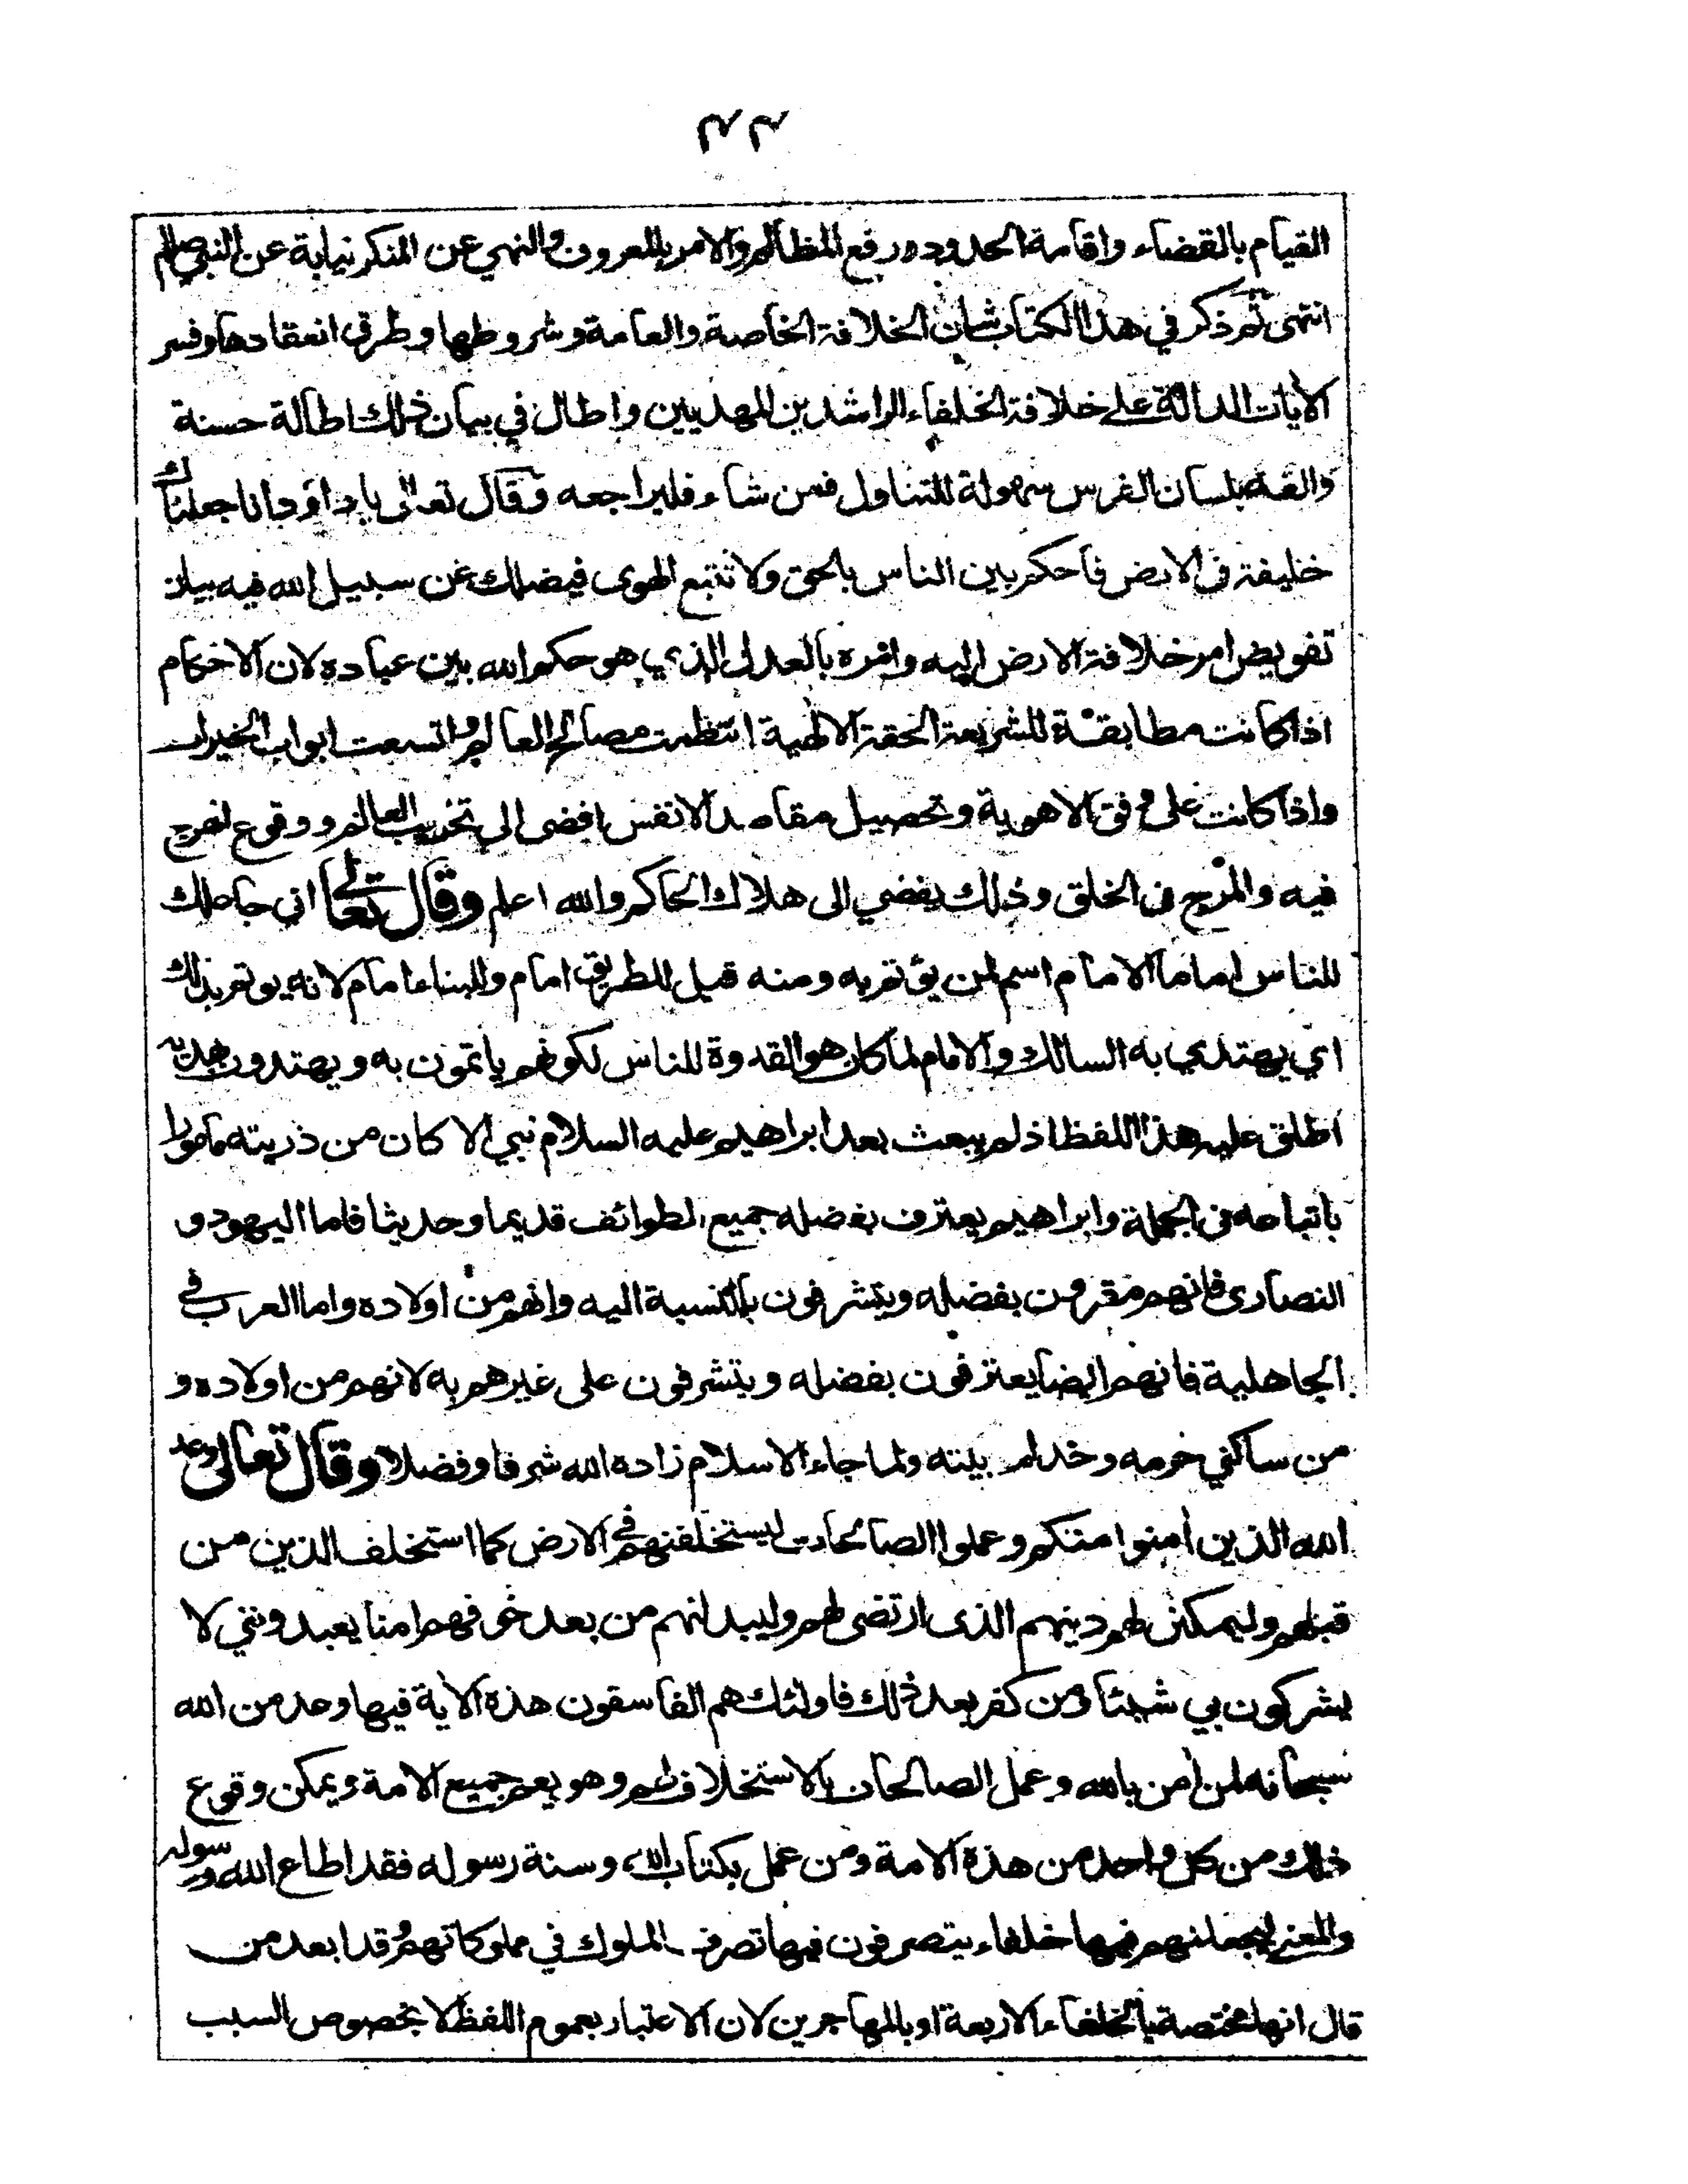 القيام بالقضاء واقامة الحدود ورفع المظالم والامر بالمعروف والنهي عن المنكر نيابة عن النبي صلم
انتهى ثم ذكر في هذا الكتاب شان الخلافة الخاصة والعامة وشروطها وطرق انعقادها وفسر
الأيات الدالة على خلافة الخلفاء الراشدين المهديين واطال في بيان ذلك اطالة حسنة
والفه بلسان الفرس سهولة للتناول فمن شاء فليراجعه وقال تعالى يا داؤد انا جعلناك
خليفة فى الارض فاحكم بين الناس بالحق ولا تتبع الهوى فيضلك عن سبيل الله فيه بيان
تفويض امر خلافة الارض اليه وامره بالعدل الذي هو حكم الله بين عباده لان الاحكام
اذا كانت مطابقة للشريعة الحقة الالهية انتظمت مصالح العالم واتسعت ابواب الخيرات
واذا كانت على وفق الاهوية وتحصيل مقاصد الانفس افضى الى تخريب العالم ووقوع الهرج
فيه والمرج فى الخلق وذلك يفضي الى هلاك الحاكم والله اعلم وقال تعالى اني جاعلك
للناس اماما الامام اسم لمن يؤتم به ومنه قيل للطريق امام وللبناء امام لانه يوتم بذلك
اي يهتدي به السالك والامام لما كان هو القدوة للناس لكونهم يأتمون به ويهتدون بهديه
اطلق عليه هذا اللفظ اذ لم يبعث بعد ابراهيم عليه السلام نبي الا كان من ذريته مأمورا
باتباعه فى الجملة وابراهيم يعترف بفضله جميع الطوائف قديما وحديثا فاما اليهود و
النصارى فانهم مقرون بفضله ويتشرفون بالنسبة اليه وانهم من اولاده واما العرب في
الجاهلية فانهم ايضا يعترفون بفضله ويتشرفون على غيرهم به لانهم من اولاده و
من ساكني حرمه وخدام بيته ولما جاء الاسلام زاده الله شرفا وفضلا وقال تعالى وعد
الله الذين أمنوا منكم وعملوا الصالحات ليستخلفنهم في الارض كما استخلف الذين من
قبلهم وليمكنن لهم دينهم الذى ارتضى لهم وليبدلنهم من بعد خوفهم امنا يعبدونني لا
يشركون بي شيئا ومن كفر بعد ذلك فاولئك هم الفاسقون هذه الأية فيها وعد من الله
سبحانه لمن أمن بالله وعمل الصالحات بالاستخلاف لهم وهو يعم جميع الامة ويمكن وقوع
ذلك من كل واحد من هذه الامة ومن عمل بكتاب الله وسنة رسوله فقد اطاع الله ورسوله
والمعنى ليجعلنهم فيها خلفاء يتصرفون فيها تصرف الملوك في مملوكاتهم وقد ابعد من
قال انها مختصة بالخلفاء الاربعة او بالمهاجرين لان الاعتبار بعموم اللفظ لا بخصوص السبب